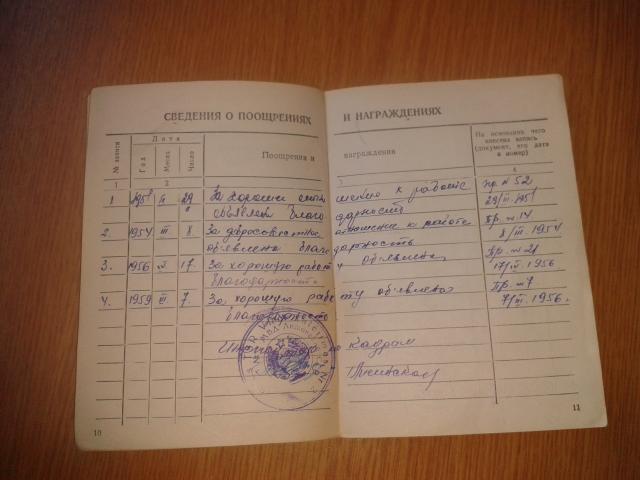 СВЕДЕНИЯ О ПООЩРЕНИЯХ И НАГРАЖДЕНИЯХ
№ записи
Дата
Год Месяц Число
Поощрения и награждения
На основании чего
внесена запись
(документ, его дата
и номер)
1 2 3 4
1 195 29 За хорошее отно шение к работе Пр. № 52
объявлена благо дарность 29/III
2. 1954 III 8 За добросовестное отношение к работе Пр. № 14
объявлена благо дарность 8/III 1954
3. 1956 17. За хорошую работу объявлена Пр. № 21
благодарность 17/ 1956
4. 1959 III 7. За хорошую рабо ту объявлена Пр. № 7
благодарность 7/III 1956.
по кадрам
10
11